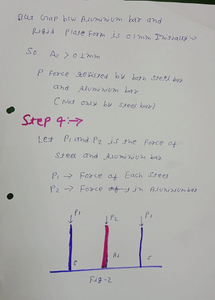 Due Gap b/w Aluminium bar and
Rigid Plate Form is 0.1mm Initially
So Δs > 0.1mm
P Force resisted by both Steel bar
and Aluminium bar
(Not only by Steel bar)
Step 4:→
Let P1 and P2 is the Force of
Steel and Aluminium bar
P1 → Force of Each Steel
P2 → Force of in Aluminium bar
P1 P2 P1
S Al S
Fig-2